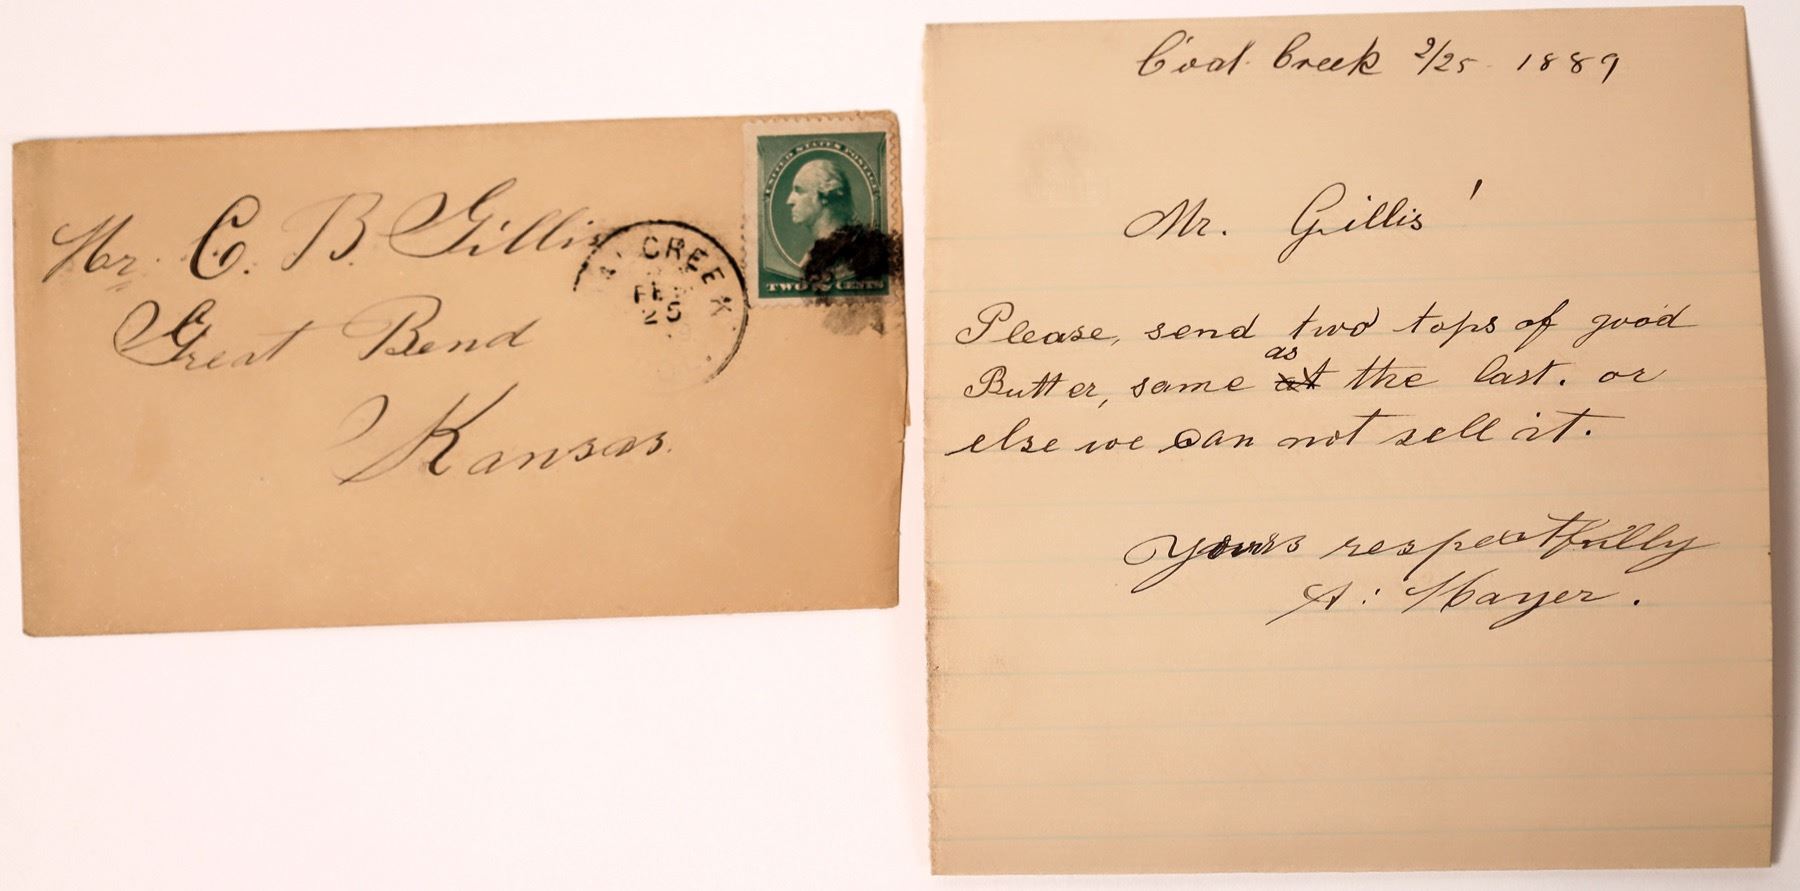 Mr. C. B. Gillis
Great Bend
Kansas.
CREEK
FEB
25
UNITED STATES POSTAGE
TWO 2 CENTS
Coal Creek 2/25 - 1889
Mr. Gillis'
Please, send two tops of good
as
Butter, same at the last. or
else we can not sell it.
Yours respectfully
A: Mayer.